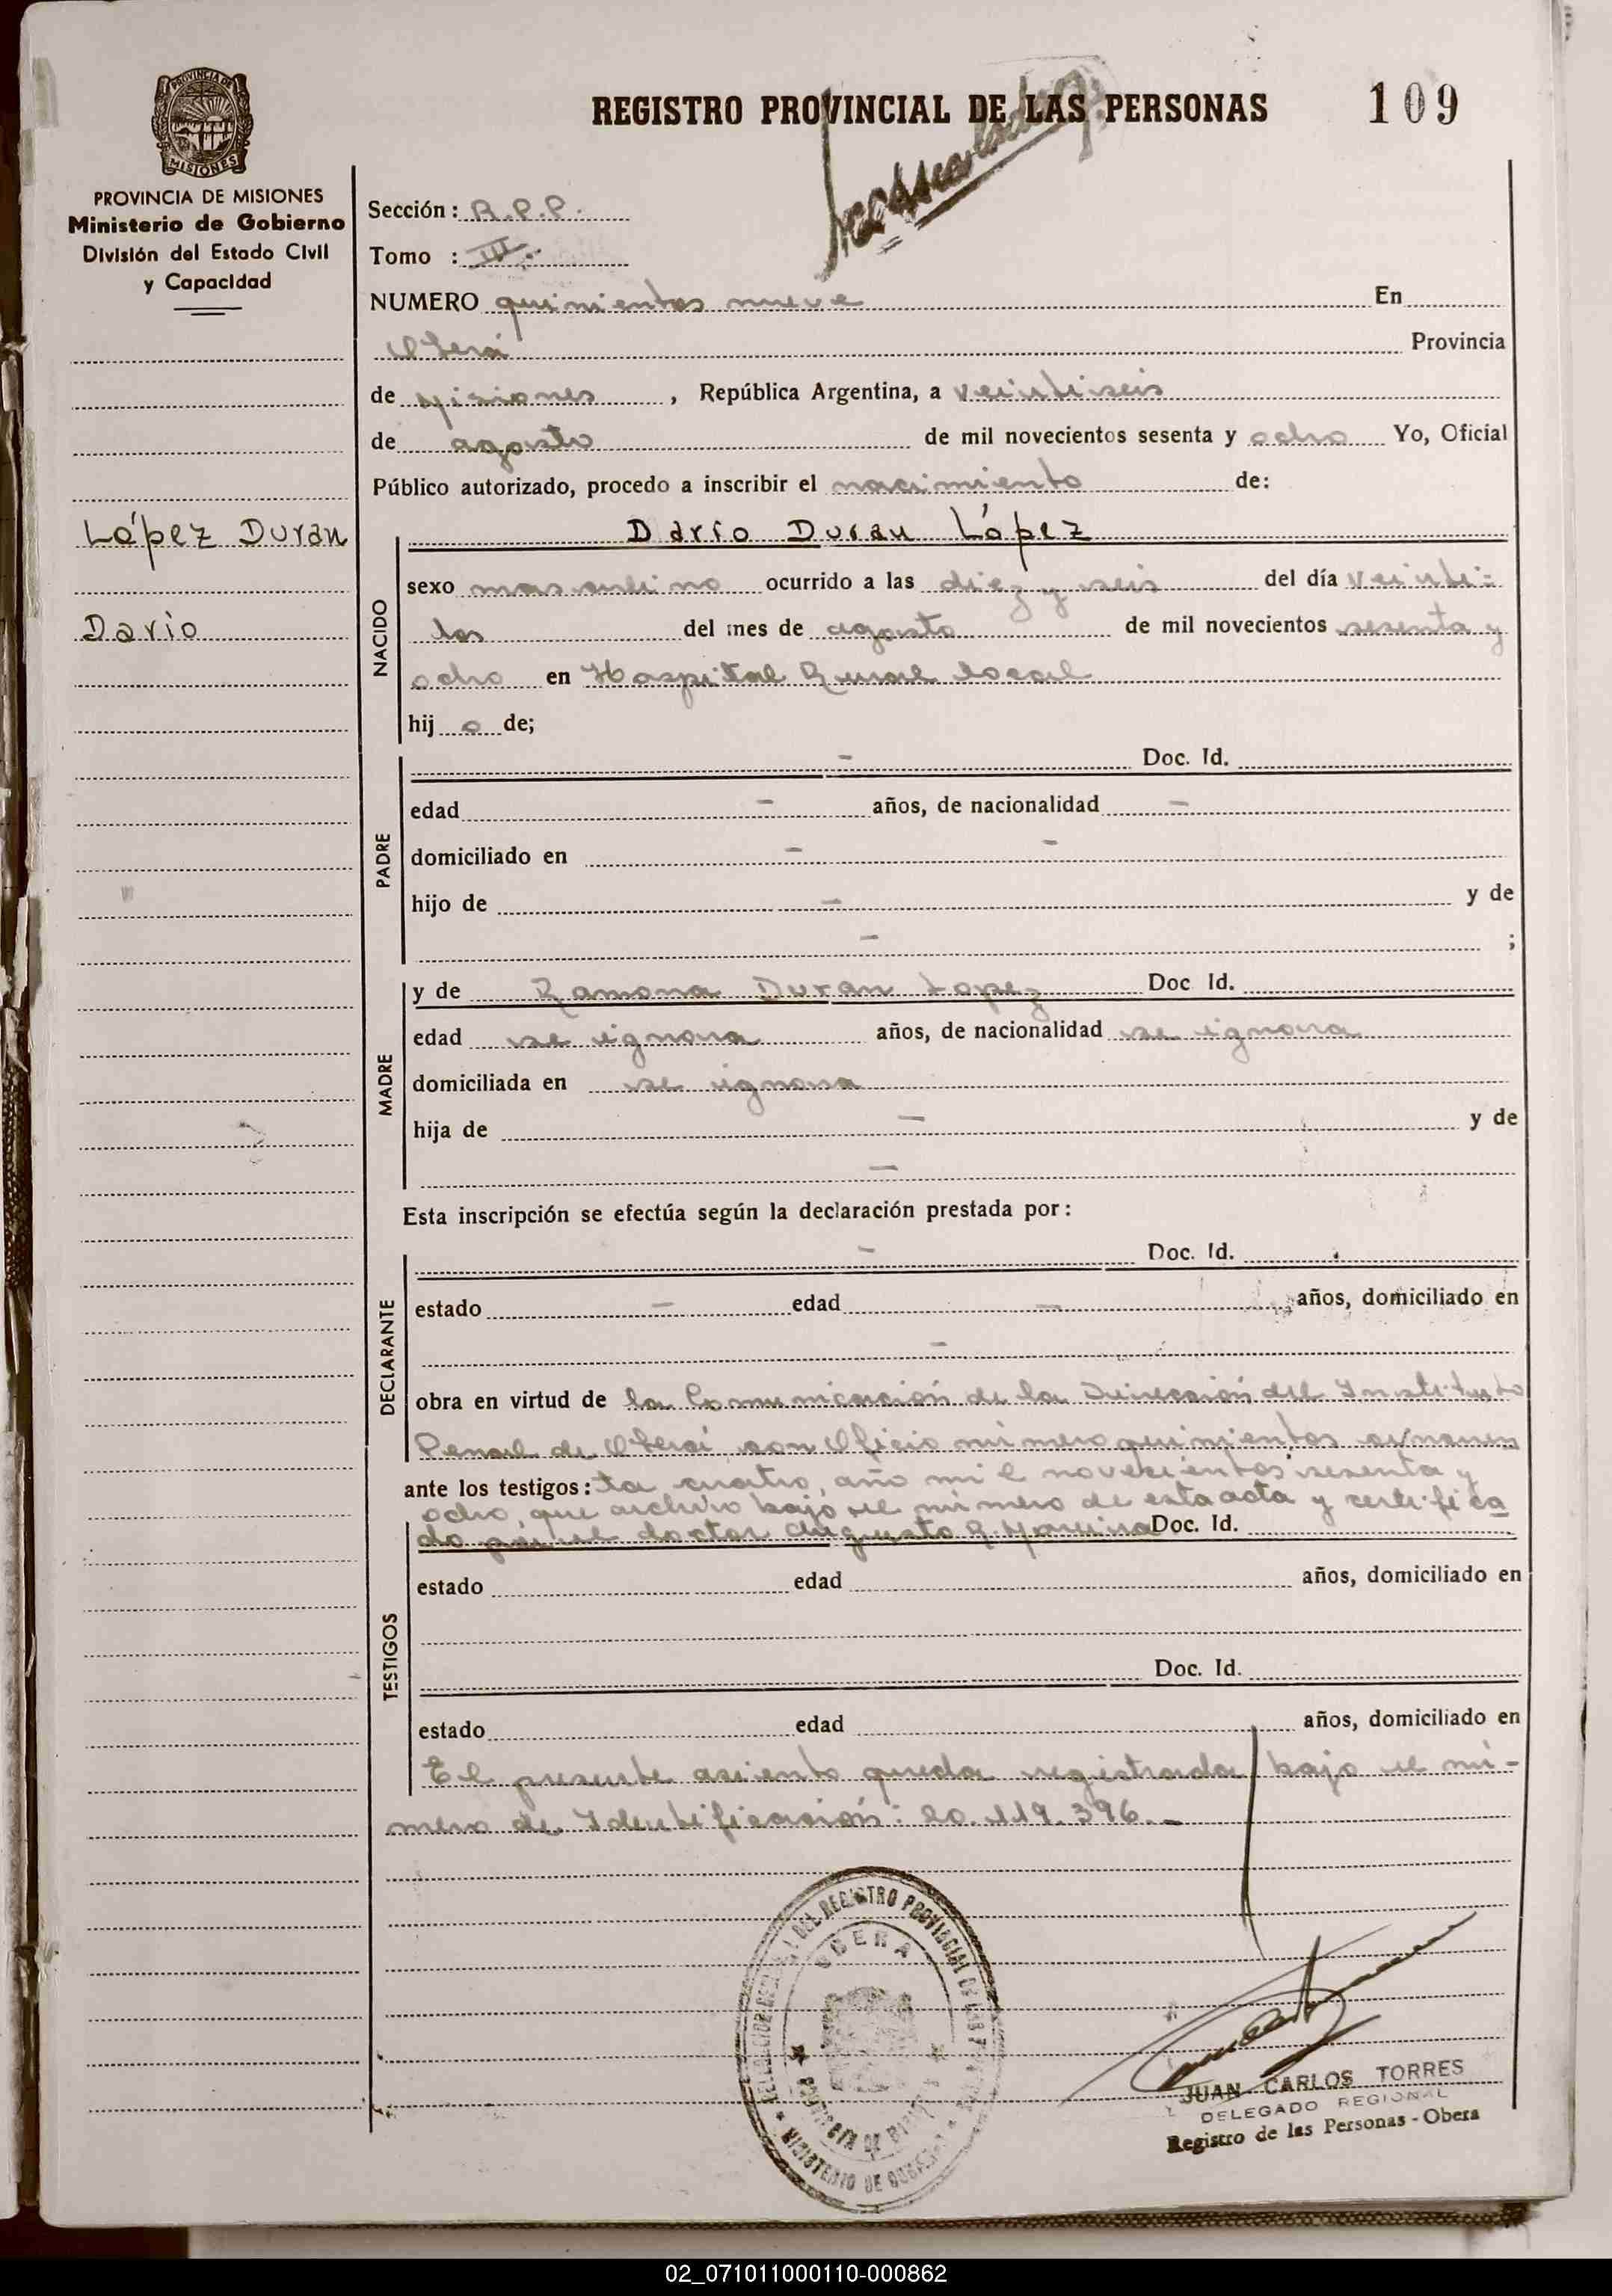 REGISTRO PROVINCIAL DE LAS PERSONAS 109
PROVINCIA DE MISIONES
Ministerio de Gobierno
División del Estado Civil
y Capacidad
MISIONES
López Duran
Dario
Sección: R.P.P.
Tomo : III.
NUMERO quinientos nueve En
Oberá Provincia
de Misiones, República Argentina, a veintiseis
de agosto de mil novecientos sesenta y ocho Yo, Oficial
Público autorizado, procedo a inscribir el nacimiento de:
NACIDO
Dario Duran López
sexo masculino ocurrido a las diez y seis del día veinti-
dos del mes de agosto de mil novecientos sesenta y
ocho en Hospital Rural local
hij o de;
PADRE
- Doc. Id.
edad - años, de nacionalidad -
domiciliado en - -
hijo de - y de
- ;
MADRE
y de Ramona Duran Lopez Doc Id.
edad se ignora años, de nacionalidad se ignora
domiciliada en se ignora
hija de - y de
-
Esta inscripción se efectúa según la declaración prestada por:
DECLARANTE
- Doc. Id.
estado - edad - años, domiciliado en
-
obra en virtud de la Comunicación de la Dirección del Instituto
Penal de Oberá con Oficio número quinientos
ante los testigos: ta cuatro, año mil novecientos sesenta y
ocho, que archivo bajo el número de esta acta y certifica
do por el doctor Augusto R. Doc. Id.
TESTIGOS
estado edad años, domiciliado en
Doc. Id.
estado edad años, domiciliado en
El presente asiento queda registrada bajo el nú-
mero de Identificación: 20.119.396.-
OBERA
MINISTERIO DE GOBIERNO
JUAN CARLOS TORRES
DELEGADO REGIONAL
Registro de las Personas - Obera
02_071011000110-000862